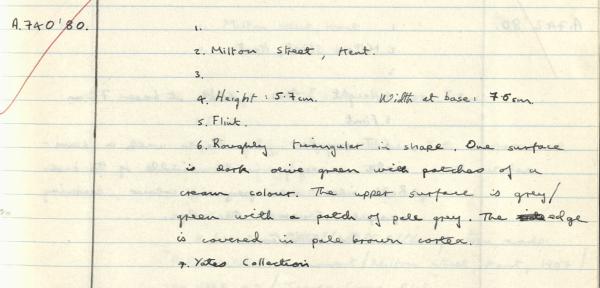 A.740'80.
1.
2. Milton Street, Kent.
3.
4. Height: 5.7cm. Width at base: 7.5cm.
5. Flint.
6. Roughly triangular in shape. One surface
is dark olive green with patches of a
cream colour. The upper surface is grey/
green with a patch of pale grey. The edge
is covered in pale brown cortex.
7. Yates Collection